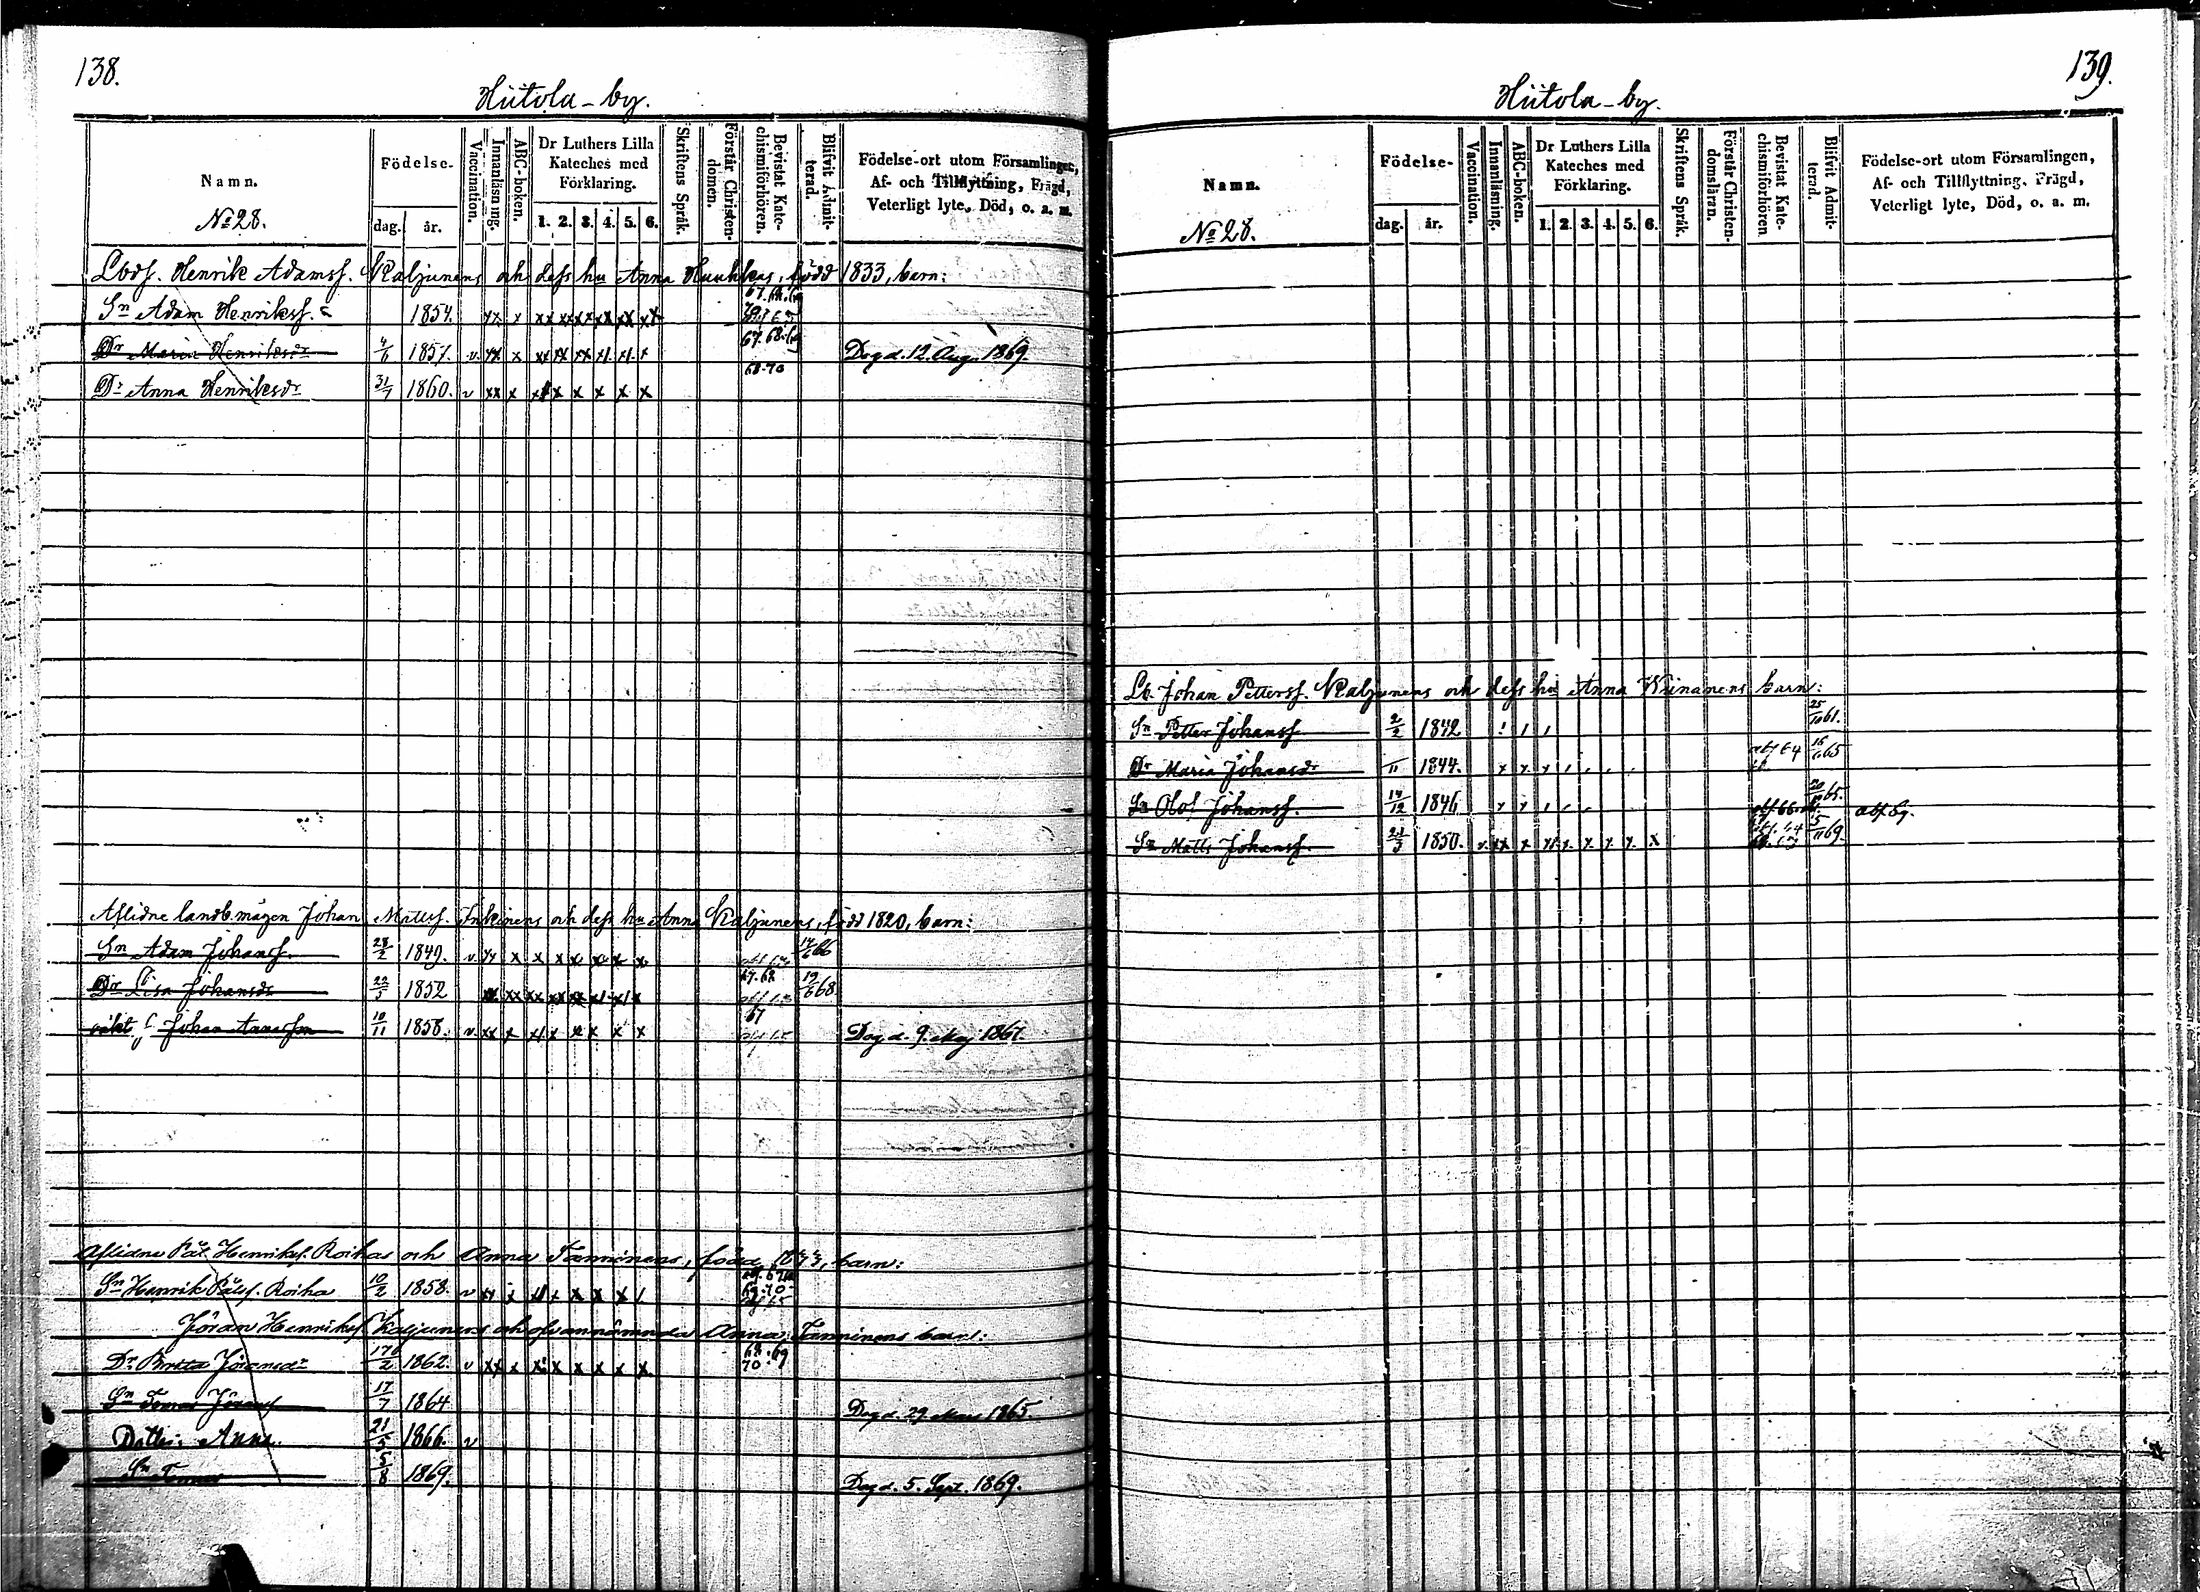 138.
Hiitola-by.
Namn.
No 28.
Födelse-
dag. år.
Vaccination.
Innanläsning.
ABC-boken.
Dr Luthers Lilla
Kateches med
Förklaring.
1. 2. 3. 4. 5. 6.
Skriftens Språk.
Förstår Christen-
domen.
Bevistat Kate-
chismiförhören.
Blifvit Admit-
terad.
Födelse-ort utom Församlingen,
Af- och Tillflyttning, Frägd,
Veterligt lyte, Död, o. a. m.
Lbds. Henrik Adamss. Kaljunens och dess hu Anna Huuhkas, född 1833, barn:
Sn Adam Henrikss. 1854. xx x xx xx xx xx xx xx
Dr Maria Henriksdr 4/6 1857. v. xx x xx xx xx x1. x1. x 67. 68. 69 Dog d. 12. Aug. 1869.
Dr Anna Henriksdr 31/7 1860. v xx x x x x x x 68. 70
Aflidne landb. mågen Johan Mattss. Inkinens och dess hu Anna Kaljunens, född 1820, barn:
Sn Adam Johanss. 28/2 1849. v x x x x x x x 14/6 66
Dr Lisa Johansdr 22/3 1852 xx xx xx xx x1. x1 x 67. 68 19/6 68
oäkt. s. Johan Annason 10/11 1858. v. xx x x1 x x x x x 67 Dog d. 9. Maj 1867.
Aflidne Pål Henrikss. Roihas och Anna Tanninens, född barn:
Sn Henrik Pålss. Roiha 10/2 1858. v
Jöran Henrikss Kaljunens och ofvannämnda Anna Tanninens barn:
Dr Britta Jöransdr 17/2 1862. v xx x x x x x x x 68. 69 70
Sn Tomas Jöranss 17/7 1864 Dog d. 29 Mars 1865.
Dotter Anna. 21/5 1866. v
Sn Tomas 5/8 1869. Dog d. 5. Sept. 1869.
139.
Hiitola-by.
Namn.
No 28.
Födelse-
dag. år.
Vaccination.
Innanläsning.
ABC-boken.
Dr Luthers Lilla
Kateches med
Förklaring.
1. 2. 3. 4. 5. 6.
Skriftens Språk.
Förstår Christen-
domsläran.
Bevistat Kate-
chismiförhören
Blifvit Admit-
terad.
Födelse-ort utom Församlingen,
Af- och Tillflyttning, Frägd,
Veterligt lyte, Död, o. a. m.
Lb. Johan Petterss. Kaljunens och dess hu Anna barn:
Sn Petter Johanss. 2/2 1842 25/10 61.
Dr Maria Johansdr /11 1844. 65
Sn Olof Johanss. 14/12 1846 65.
Sn Matts Johanss. 21/3 1850. v. xx x x x x x x 5/11 69.